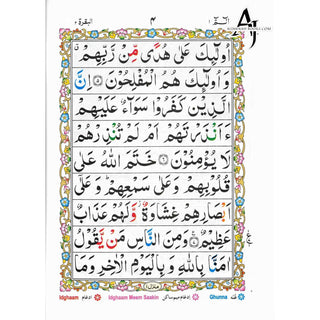 البقرة ٢
٤
الٓمّٓ ١
AJ
ALHIDAAYAH BOOKS.COM
اُولٰٓئِكَ عَلٰى هُدًى مِّنْ رَّبِّهِمْ ۙ
وَاُولٰٓئِكَ هُمُ الْمُفْلِحُوْنَ ۝٥ اِنَّ
الَّذِيْنَ كَفَرُوْا سَوَآءٌ عَلَيْهِمْ
ءَاَنْذَرْتَهُمْ اَمْ لَمْ تُنْذِرْهُمْ
لَا يُؤْمِنُوْنَ ۝٦ خَتَمَ اللّٰهُ عَلٰى
قُلُوْبِهِمْ وَعَلٰى سَمْعِهِمْ ؕ وَعَلٰٓى
اَبْصَارِهِمْ غِشَاوَةٌ ؗ وَّلَهُمْ عَذَابٌ
عَظِيْمٌ ۝٧ وَمِنَ النَّاسِ مَنْ يَّقُوْلُ
اٰمَنَّا بِاللّٰهِ وَبِالْيَوْمِ الْاٰخِرِ وَمَا
Idghaam ادغام Idghaam Meem Saakin ادغام میم ساکن Ghunna غنہ